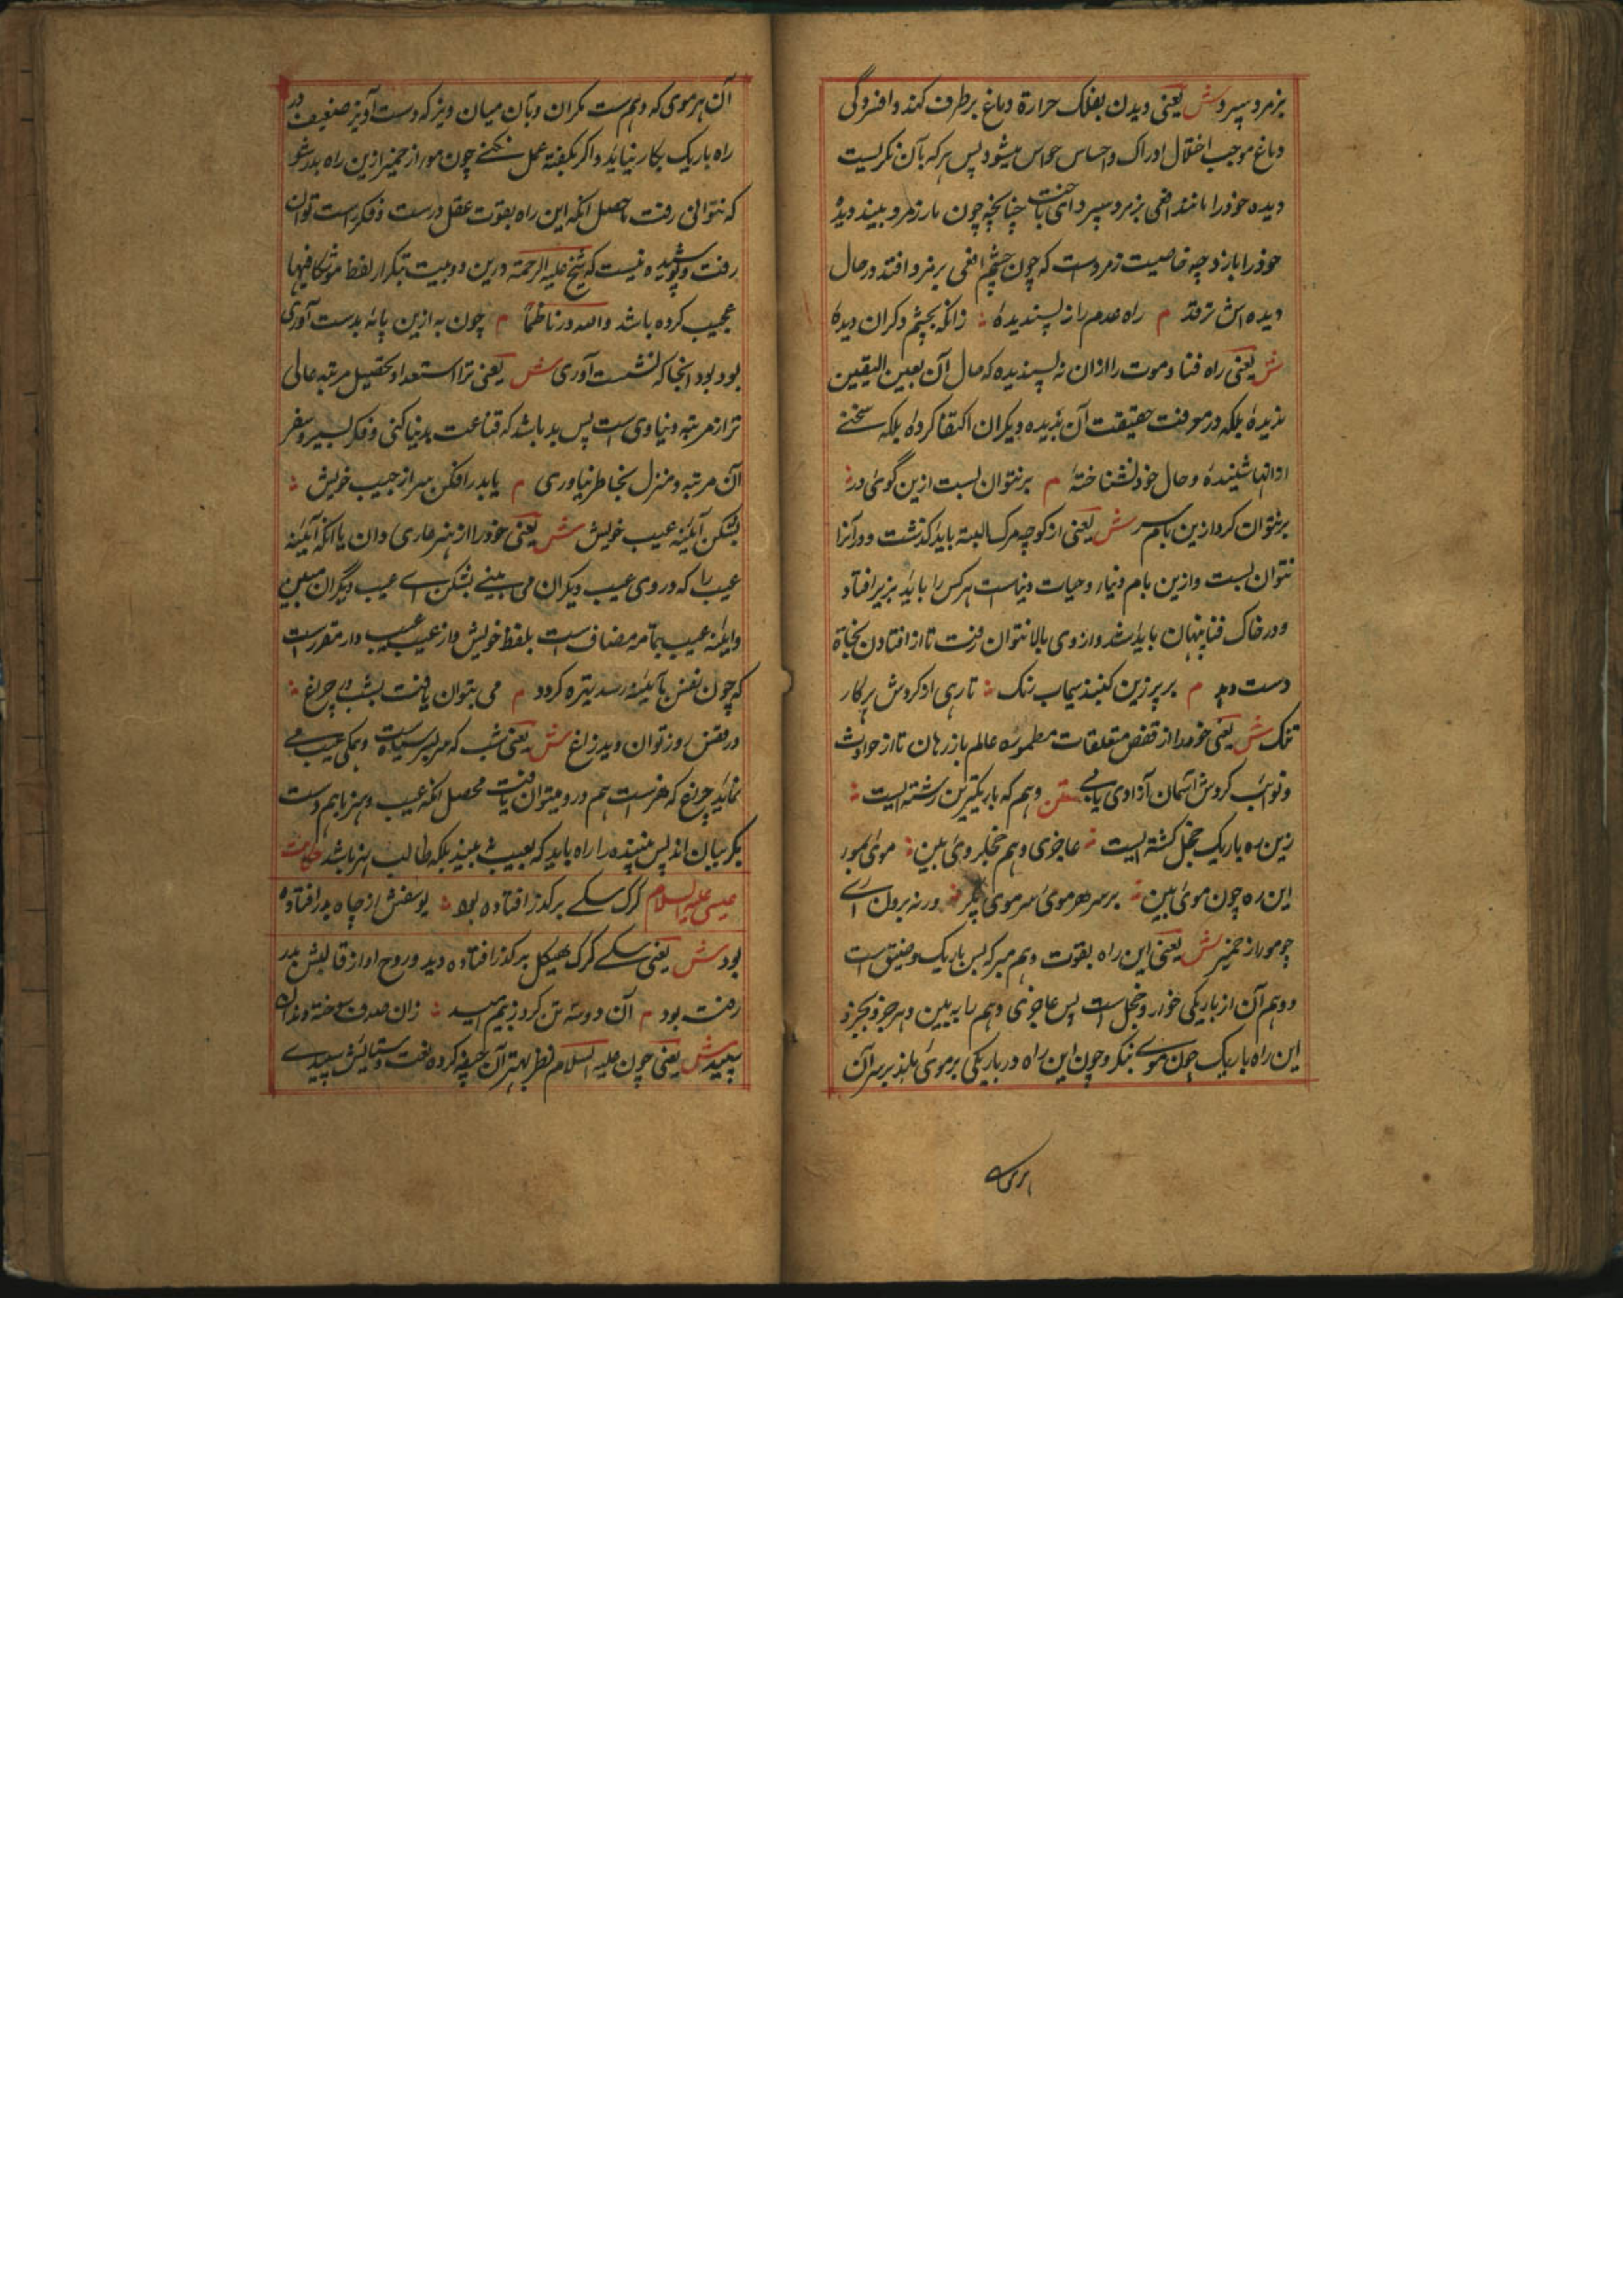 بزمرد سپرد ش یعنی دیدن بفلک حرارة دماغ برطرف کند و افسردگی
دماغ موجب اختلال ادراک و احساس حواس میشود پس هر که بآن نکریست
دیده خود را مانند افعی بزمرد سپرد ای باخت چنانچه چون مار زمرد بیند دیدهٔ
خود را بازد چه خاصیت زمرد است که چون چشم افعی بر زمرد افتد در حال
دیده اش ترقد م راه عدم را نه پسندیدهٔ زانکه بچشم دکران دیدهٔ
ش یعنی راه فنا و موت را ازان نه پسندیده که حال آن بعین الیقین
ندیدهٔ بلکه در معرفت حقیقت آن بدیده دیکران اکتفا کردهٔ بلکه سخنے
از انها شنیدهٔ و حال خود نشناختهٔ م بر نتوان بست ازین کوی در
بر نتوان کرد ازین بام سر ش یعنی از کوچه مرک البته باید کذشت و در آنرا
نتوان بست و ازین بام دنیا و حیات دنیاست هر کس را باید بزیر افتاد
و در خاک فنا پنهان باید شد و از وی بالا نتوان رفت تا از افتادن نجاة
دست دهد م بر پر زین کنبذ سیماب رنک تا رهی از کردش پرکار
تنک ش یعنی خود را از قفص متعلقات مطمورهٔ عالم باز رهان تا از حوادث
و نوائب کردش آسمان آزادی یابے متن وهم که باریکترین رشته ایست
زین ره باریک خجل کشته ایست عاجزی وهم خجل روی بین موی بموی
این ره چون موی بین بر سر هر موی سر موی مکیر ورنه برون آے
چو مو از خمیر ش یعنی این راه بقوت وهم مبر که بس باریک و ضیق است
و وهم آن از باریکی خوار و خجل است پس عاجزی وهم را به بین و هر جزو بجزو
این راه باریک چون موے بنکر و چون این راه در باریکی بر موی ماند بر سر آن
آن هر موی که وهم ست مکران و بآن میان ویز که دست آویز ضعیف در
راه باریک بکار نیاید و اکر بکفته عمل نکنے چون مو از خمیر ازین راه بدر شو
که نتوانی رفت حاصل انکه این راه بقوت عقل درست و فکر راست توان
رفت و پوشیده نیست که شیخ علیه الرحمة درین دو بیت بتکرار لفظ مو شکافیها
عجیب کرده باشد والله در ناظما م چون به ازین پایه بدست آوری
بود بود انجا که نشست آوری ش یعنی ترا استعداد تحصیل مرتبه عالی
تر از مرتبه دنیاوی است پس بد باشد که قناعت بدنیا کنی و فکر سیر و سفر
آن مرتبه و منزل بخاطر نیاوری م یا بدر افکن سر از جیب خویش
بشکن آئینه عیب خویش ش یعنی خود را از هنر عاری دان یا انکه آئینه
عیب را که در وی عیب دیکران می بینے بشکن اے عیب دیکران مبین
و آئینه عیب بتمامه مضاف است بلفظ خویش و از عیب عیب دار مقرر است
که چون نفس بآئینه رسد تیره کردد م می بتوان یافت بشب در چراغ
در قفس روز توان دید زاغ ش یعنی شب که سراسر سیاه است و همکی عیب مے
نماید چراغ که هنر ست هم در و میتوان یافت محصل انکه عیب و هنر با هم دست
بکریبان اند پس بیننده را باید که بعیب نه بیند بلکه طالب هنر باشد حکایت
عیسی علیه السلام کرک سکے بر کذر افتاده بود یوسفش از چاه بدر افتادهٔ
بود ش یعنی سکے کرک هیکل بر کذر افتاده دید و روح او از قالبش بدر
رفته بود م آن دو سه تن کرده ز بیم امید زان صدف سوخته دندان
سپید ش یعنی چون علیه السلام نظر بهنر آن جیفه کرده کفت و ستایش سپیدے
هر موی کے